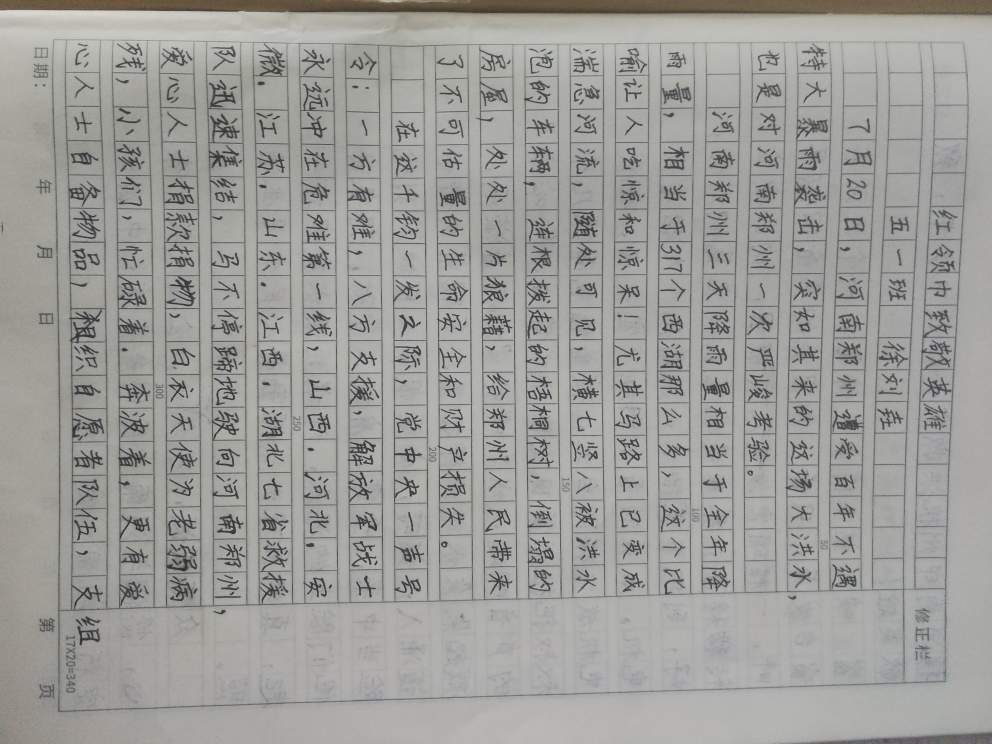 红领巾致敬英雄
五一班 徐刘
7月20日，河南郑州遭受百年不遇
特大暴雨袭击，突如其来的这场大洪水，
也是对河南郑州一次严峻考验。
河南郑州三天降雨量相当于全年降
雨量，相当于317个西湖那么多，这个比
喻让人吃惊和惊呆！尤其马路上已变成
湍急河流，随处可见，横七竖八被洪水
泡的车辆，连根拨起的梧桐树，倒塌的
房屋，处处一片狼藉，给郑州人民带来
了不可估量的生命安全和财产损失。
在这千钧一发之际，党中央一声号
令：一方有难，八方支援，解放军战士
永远冲在危难第一线，山西．河北．安
微．江苏．山东．江西．湖北七省救援
队迅速集结，马不停蹄地驶向河南郑州，
爱心人士捐款捐物，白衣天使为老弱病
残，小孩们，忙碌着．奔波着，更有爱
心人士自备物品，组织自愿者队伍，支
组
修正栏
50
100
150
200
250
300
17X20=340
日期： 年 月 日 第 页